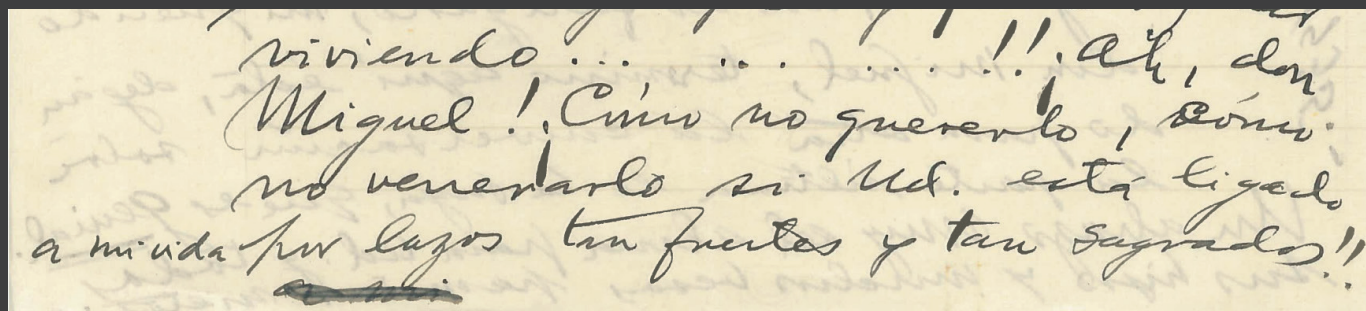 viviendo... ... ....!! ¡Ah, don
Miguel! ¡Cómo no quererlo, cómo
no venerarlo si Ud. está ligado
a mi vida por lazos tan fuertes y tan sagrados!!